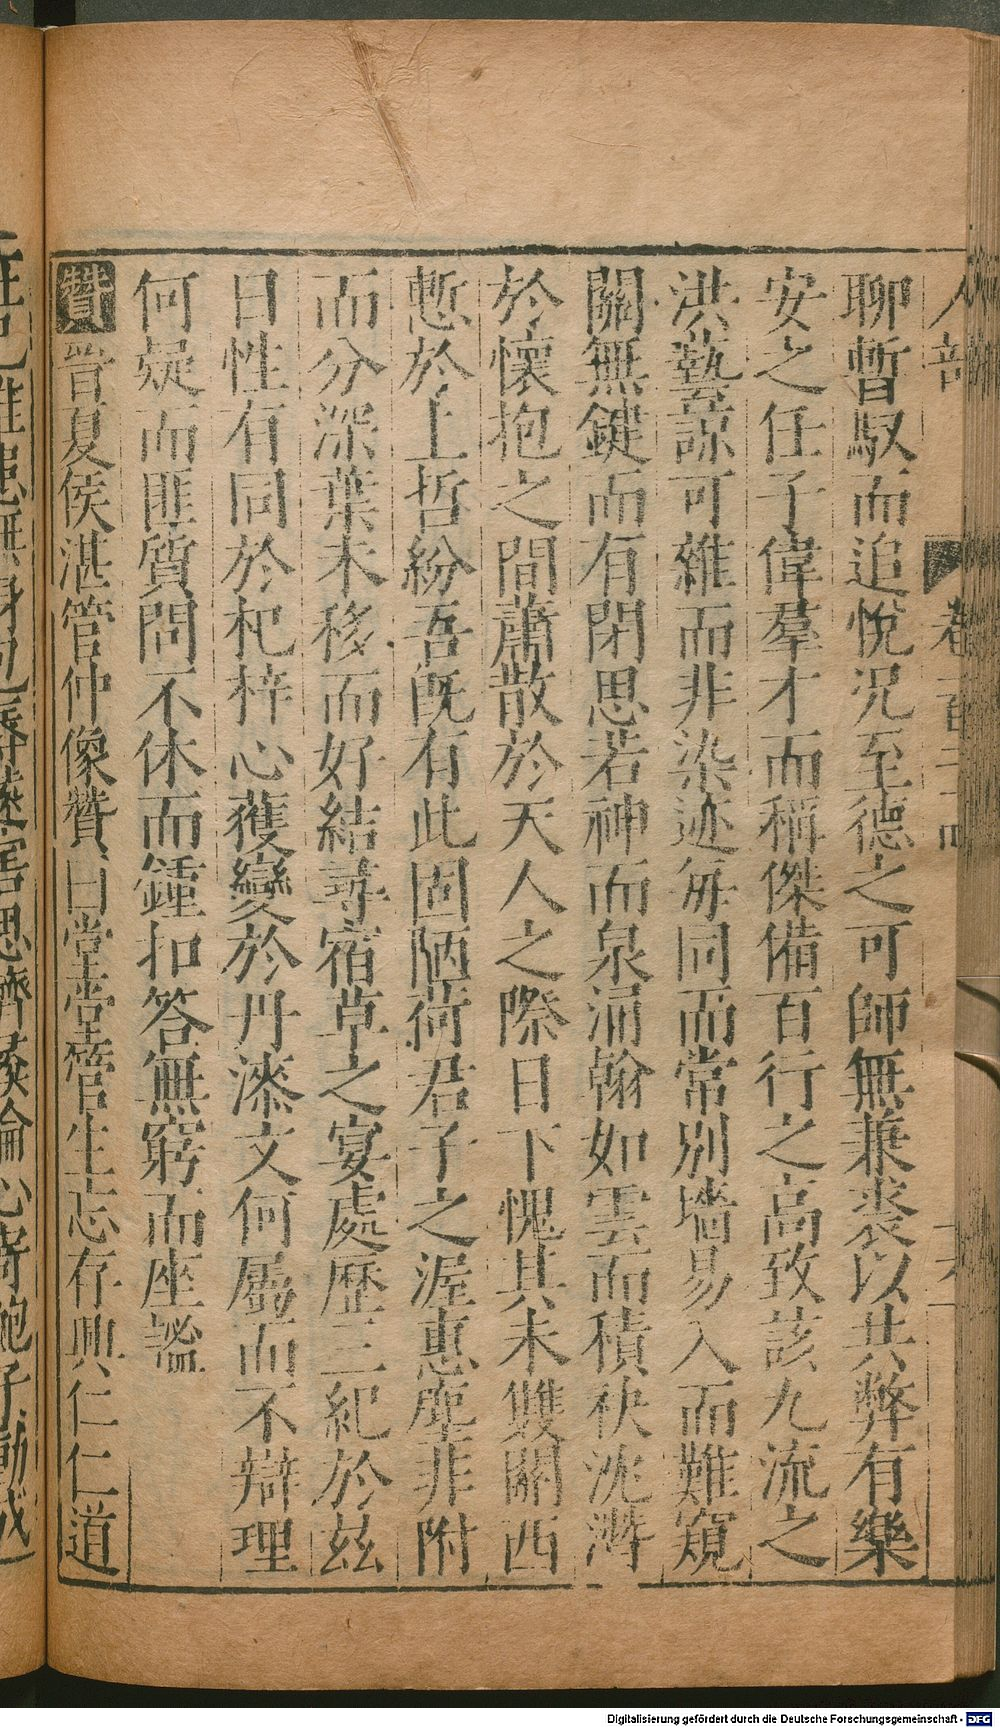 人部
卷
聊暫馭而追悅況至德之可師無兼裘以共弊有樂
安之任子偉羣才而稱傑備百行之高致該九流之
洪藝諒可雜而非染迹每同而常別墻易入而難窺
關無鍵而有閉思若神而泉涌翰如雲而積袂泚潸
於懷抱之間蕭散於天人之際日下愧其未雙關西
慙於上哲紛吾旣有此固陋荷君子之渥惠塵非附
而分深葉未移而好結尋宿草之宴處歷三紀於玆
日性有同於杞梓心獲變於丹漆文何屬而不辯理
何疑而匪質問不休而鍾扣答無窮而座謐
贊晉夏侯湛管仲像贊曰堂堂管生志存興仁仁道
Digitalisierung gefördert durch die Deutsche Forschungsgemeinschaft - DFG